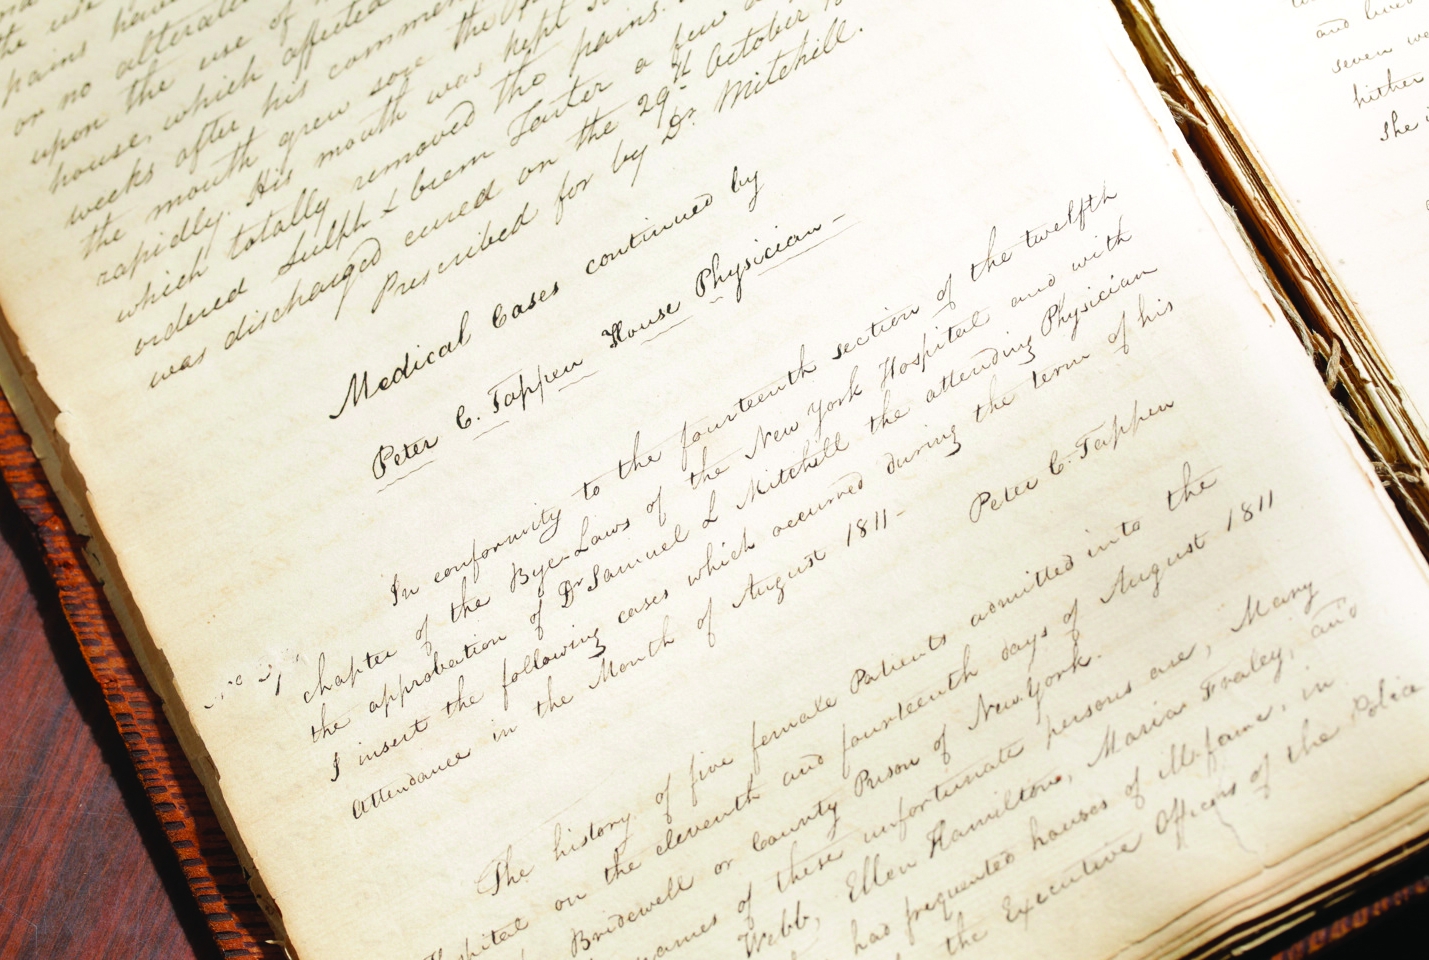 or no alterat
upon the use of
house, which affected
weeks after his commen
the mouth grew sore the
rapidly. His mouth was kept
which totally removed the pains.
ordered Sulph & Crem Tarter a few
was discharged cured on the 29th October
Prescribed for by Dr. Mitchill.
Medical Cases continued by
Peter C. Tappen House Physician-
In conformity to the fourteenth section of the twelfth
chapter of the Bye-Laws of the New York Hospital and with
the approbation of Dr Samuel L Mitchill the attending Physician
I insert the following cases which occurred during the term of his
Attendance in the Month of August 1811- Peter C. Tappen
The history of five female Patients admitted into the
spital on the eleventh and fourteenth days of August 1811
Bridewell or County Prison of New York.
names of these unfortunate persons are, Mary
Webb, Ellen Hamilton, Maria Fraley, and
had frequented houses of ill fame, in
the Executive Officers of the Police
and lived
seven we
hither
She